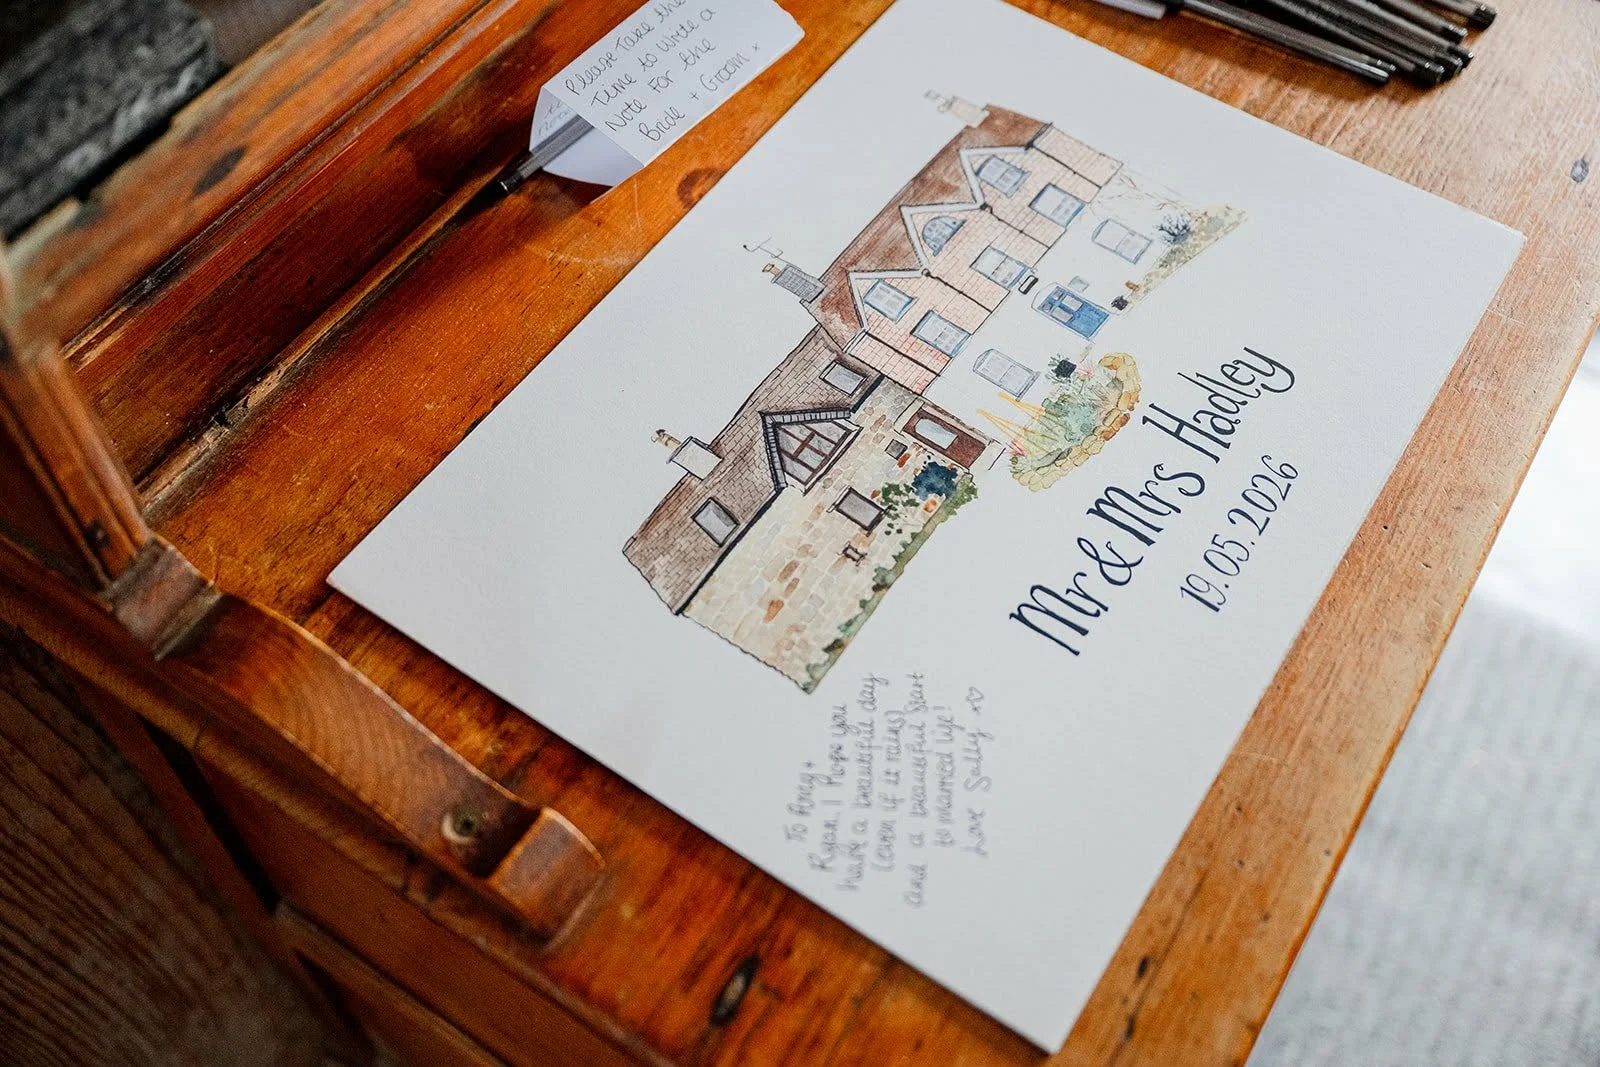 Please Take the
Time to Write a
Note For the
Bride + Groom x
Mr & Mrs Hadley
19.05.2026
To Amy +
Ryan. I hope you
have a beautiful day
(even if it rains)
and a beautiful start
to married life!
Love Sally x♡